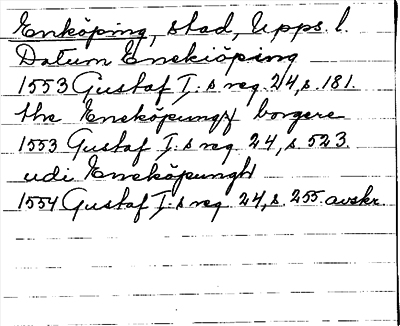 Enköping, stad, Upps. l.
Datum Enekiöping
1553 Gustaf I:s reg. 24, s. 181.
the Eneköpungx borgere
1553 Gustaf I:s reg. 24, s. 523.
udi Eneköpungh
1554 Gustaf I:s reg. 24, s. 255. avskr.